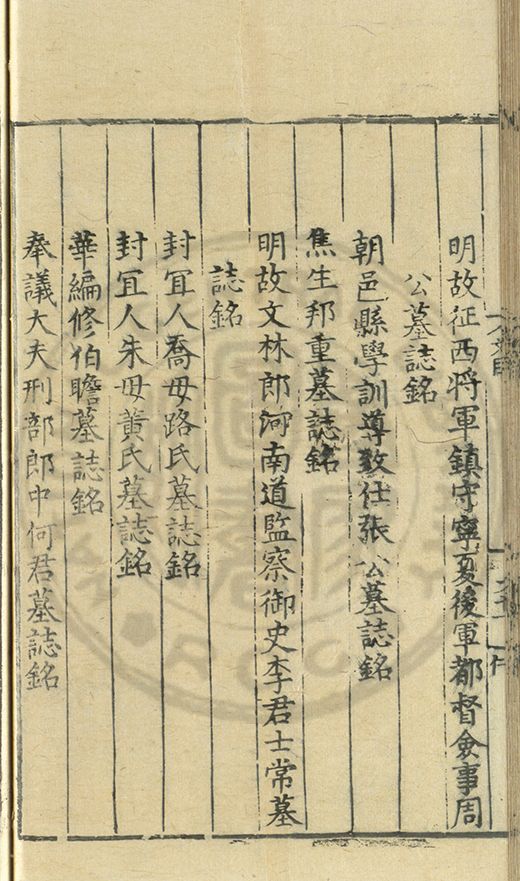 明故征西將軍鎮守寧夏後軍都督僉事周
公墓誌銘
朝邑縣學訓導致仕張公墓誌銘
焦生邦重墓誌銘
明故文林郎河南道監察御史李君士常墓
誌銘
封宜人喬母路氏墓誌銘
封宜人朱母黃氏墓誌銘
華編修伯瞻墓誌銘
奉議大夫刑部郎中何君墓誌銘